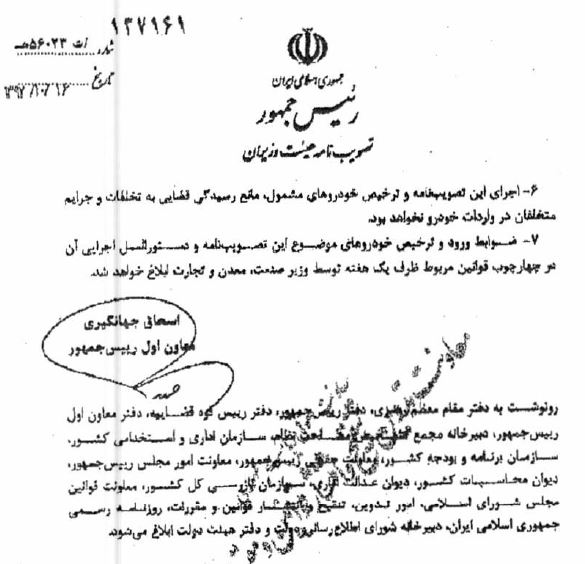 ۱۳۷۹۶۹
شماره ت۵۶۰۲۳هـ
تاریخ ۱۳۹۷/۱۰/۱۶
جمهوری اسلامی ایران
رئیس جمهور
تصویب نامه هیئت وزیران
۶- اجرای این تصویب‌نامه و ترخیص خودروهای مشمول، مانع رسیدگی قضایی به تخلفات و جرایم
متخلفان در واردات خودرو نخواهد بود.
۷- ضوابط ورود و ترخیص خودروهای موضوع این تصویب‌نامه و دستورالعمل اجرایی آن
در چهارچوب قوانین مربوط ظرف یک هفته توسط وزیر صنعت، معدن و تجارت ابلاغ خواهد شد.
اسحاق جهانگیری
معاون اول رییس‌جمهور
رونوشت به دفتر مقام معظم رهبری، دفتر رییس جمهور، دفتر رییس قوه قضاییه، دفتر معاون اول
رییس‌جمهور، دبیرخانه مجمع تشخیص مصلحت نظام، سازمان اداری و استخدامی کشور،
سازمان برنامه و بودجه کشور، معاونت حقوقی رییس‌جمهور، معاونت امور مجلس رییس‌جمهور،
دیوان محاسبات کشور، دیوان عدالت اداری، سازمان بازرسی کل کشور، معاونت قوانین
مجلس شورای اسلامی، امور تدوین، تنقیح و انتشار قوانین و مقررات، روزنامه رسمی
جمهوری اسلامی ایران، دبیرخانه شورای اطلاع‌رسانی دولت و دفتر هیئت دولت ابلاغ می‌شود.